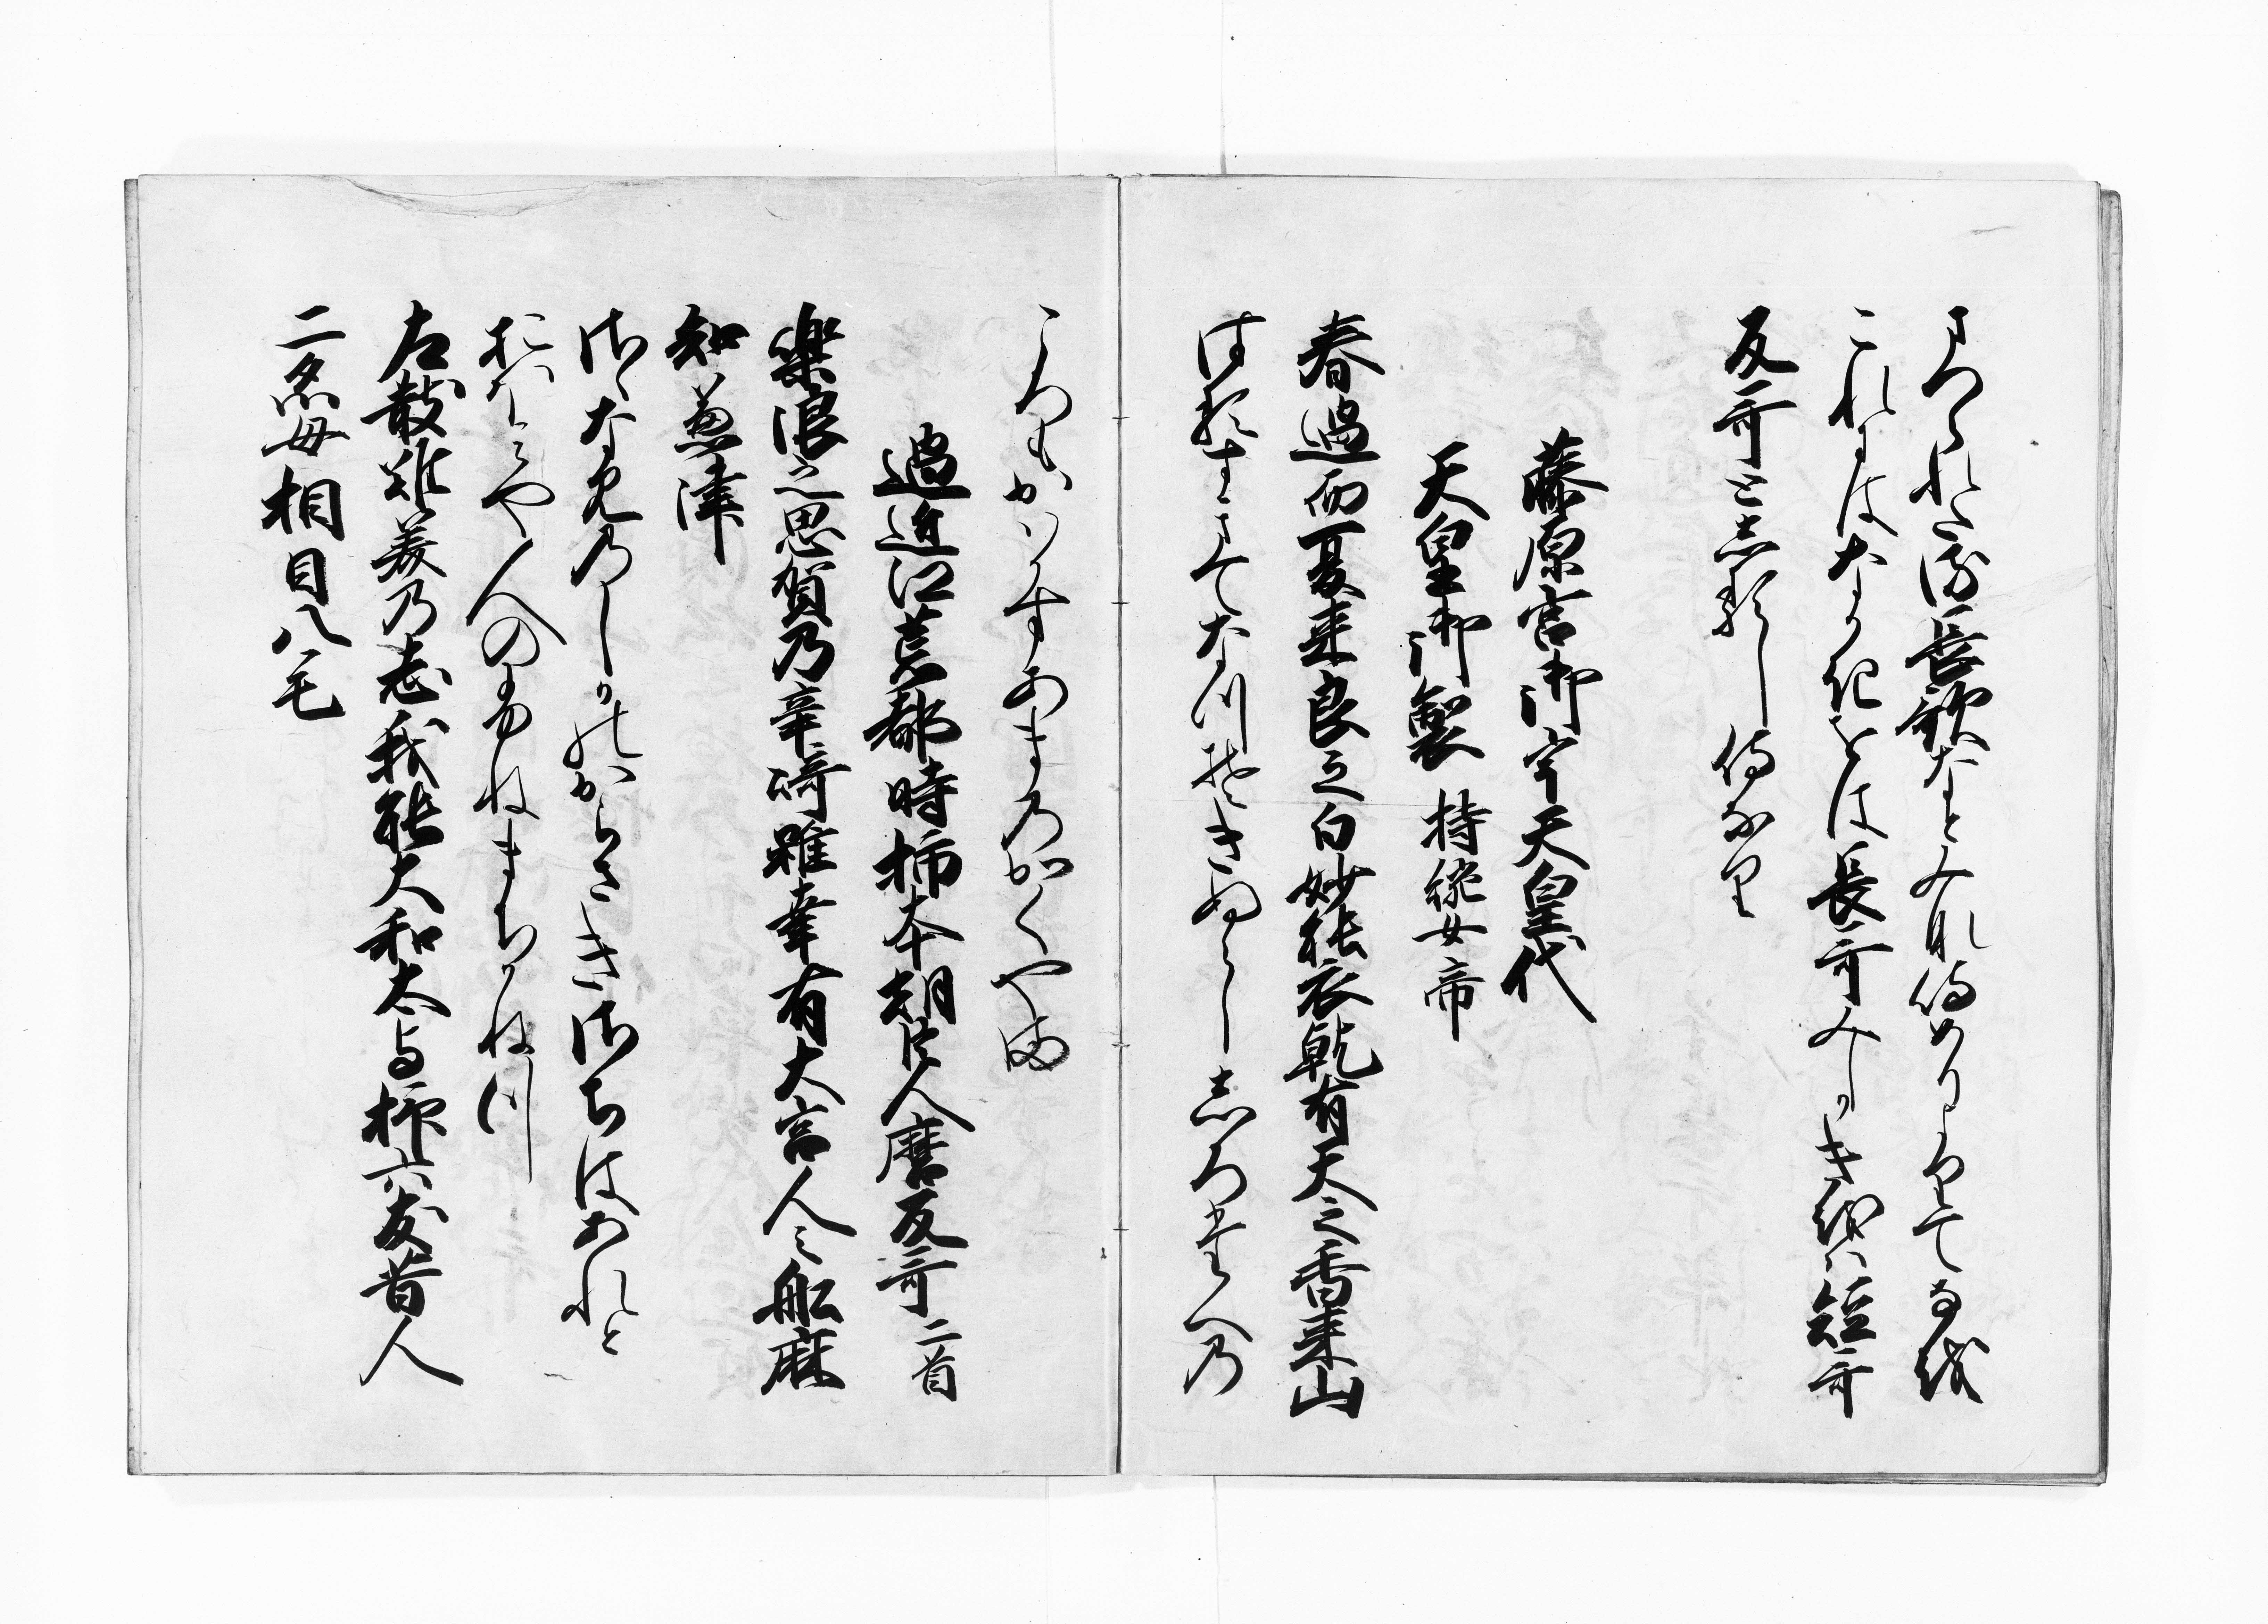 まつられたる長歌なとみな侍めりよりてなを
これにはなかきをは長哥みしかきをは短哥
反哥としるし侍なり
藤原宮御宇天皇代
天皇御製 持統女帝
春過而夏来良之白妙能衣乾有天之香来山
はるすきてなつそきぬらししろたへの
ころもかはかすあまのかくやま
過近江荒都時柿本朝臣人麿反哥二首
楽浪之思賀乃辛碕雖幸有大宮人之船麻
知兼津
さゝなみのしかのからさきさちはあれと
おほみや人のふねまちかねつ
左散難美乃志我能大和太与杼六友昔人
二亦母相目八毛